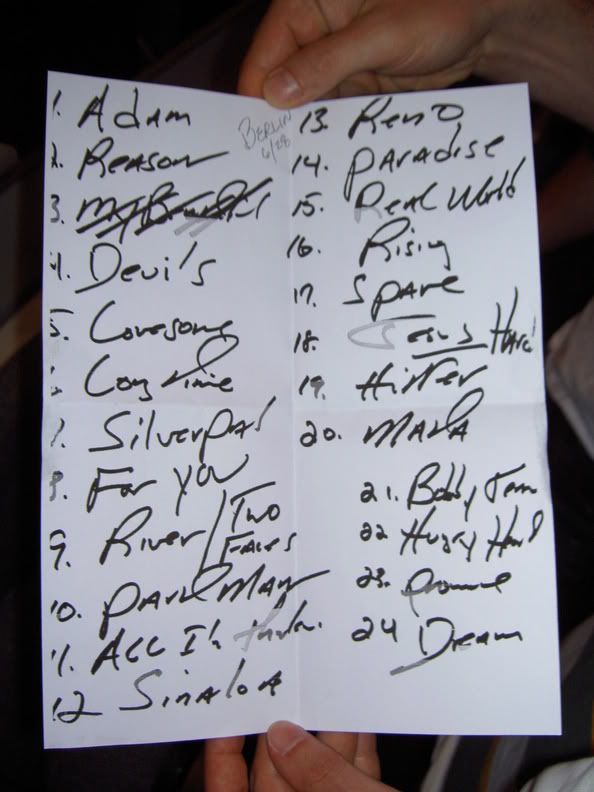 BERLIN
6/28
1. Adam
2. Reason
3. My Beautiful
4. Devils
5. Lonesome
6. Long time
7. Silver Pal
8. For you
9. River / Two Faces
10. Part Man
11. All I'm thinkin.
12 Sinaloa
13. Reno
14. Paradise
15. Real World
16. Rising
17. Spare
18. Jesus
19. Hitter
20. Mata
21. Bobby Jean
22 Hungry Heart
23. Promise
24 Dream